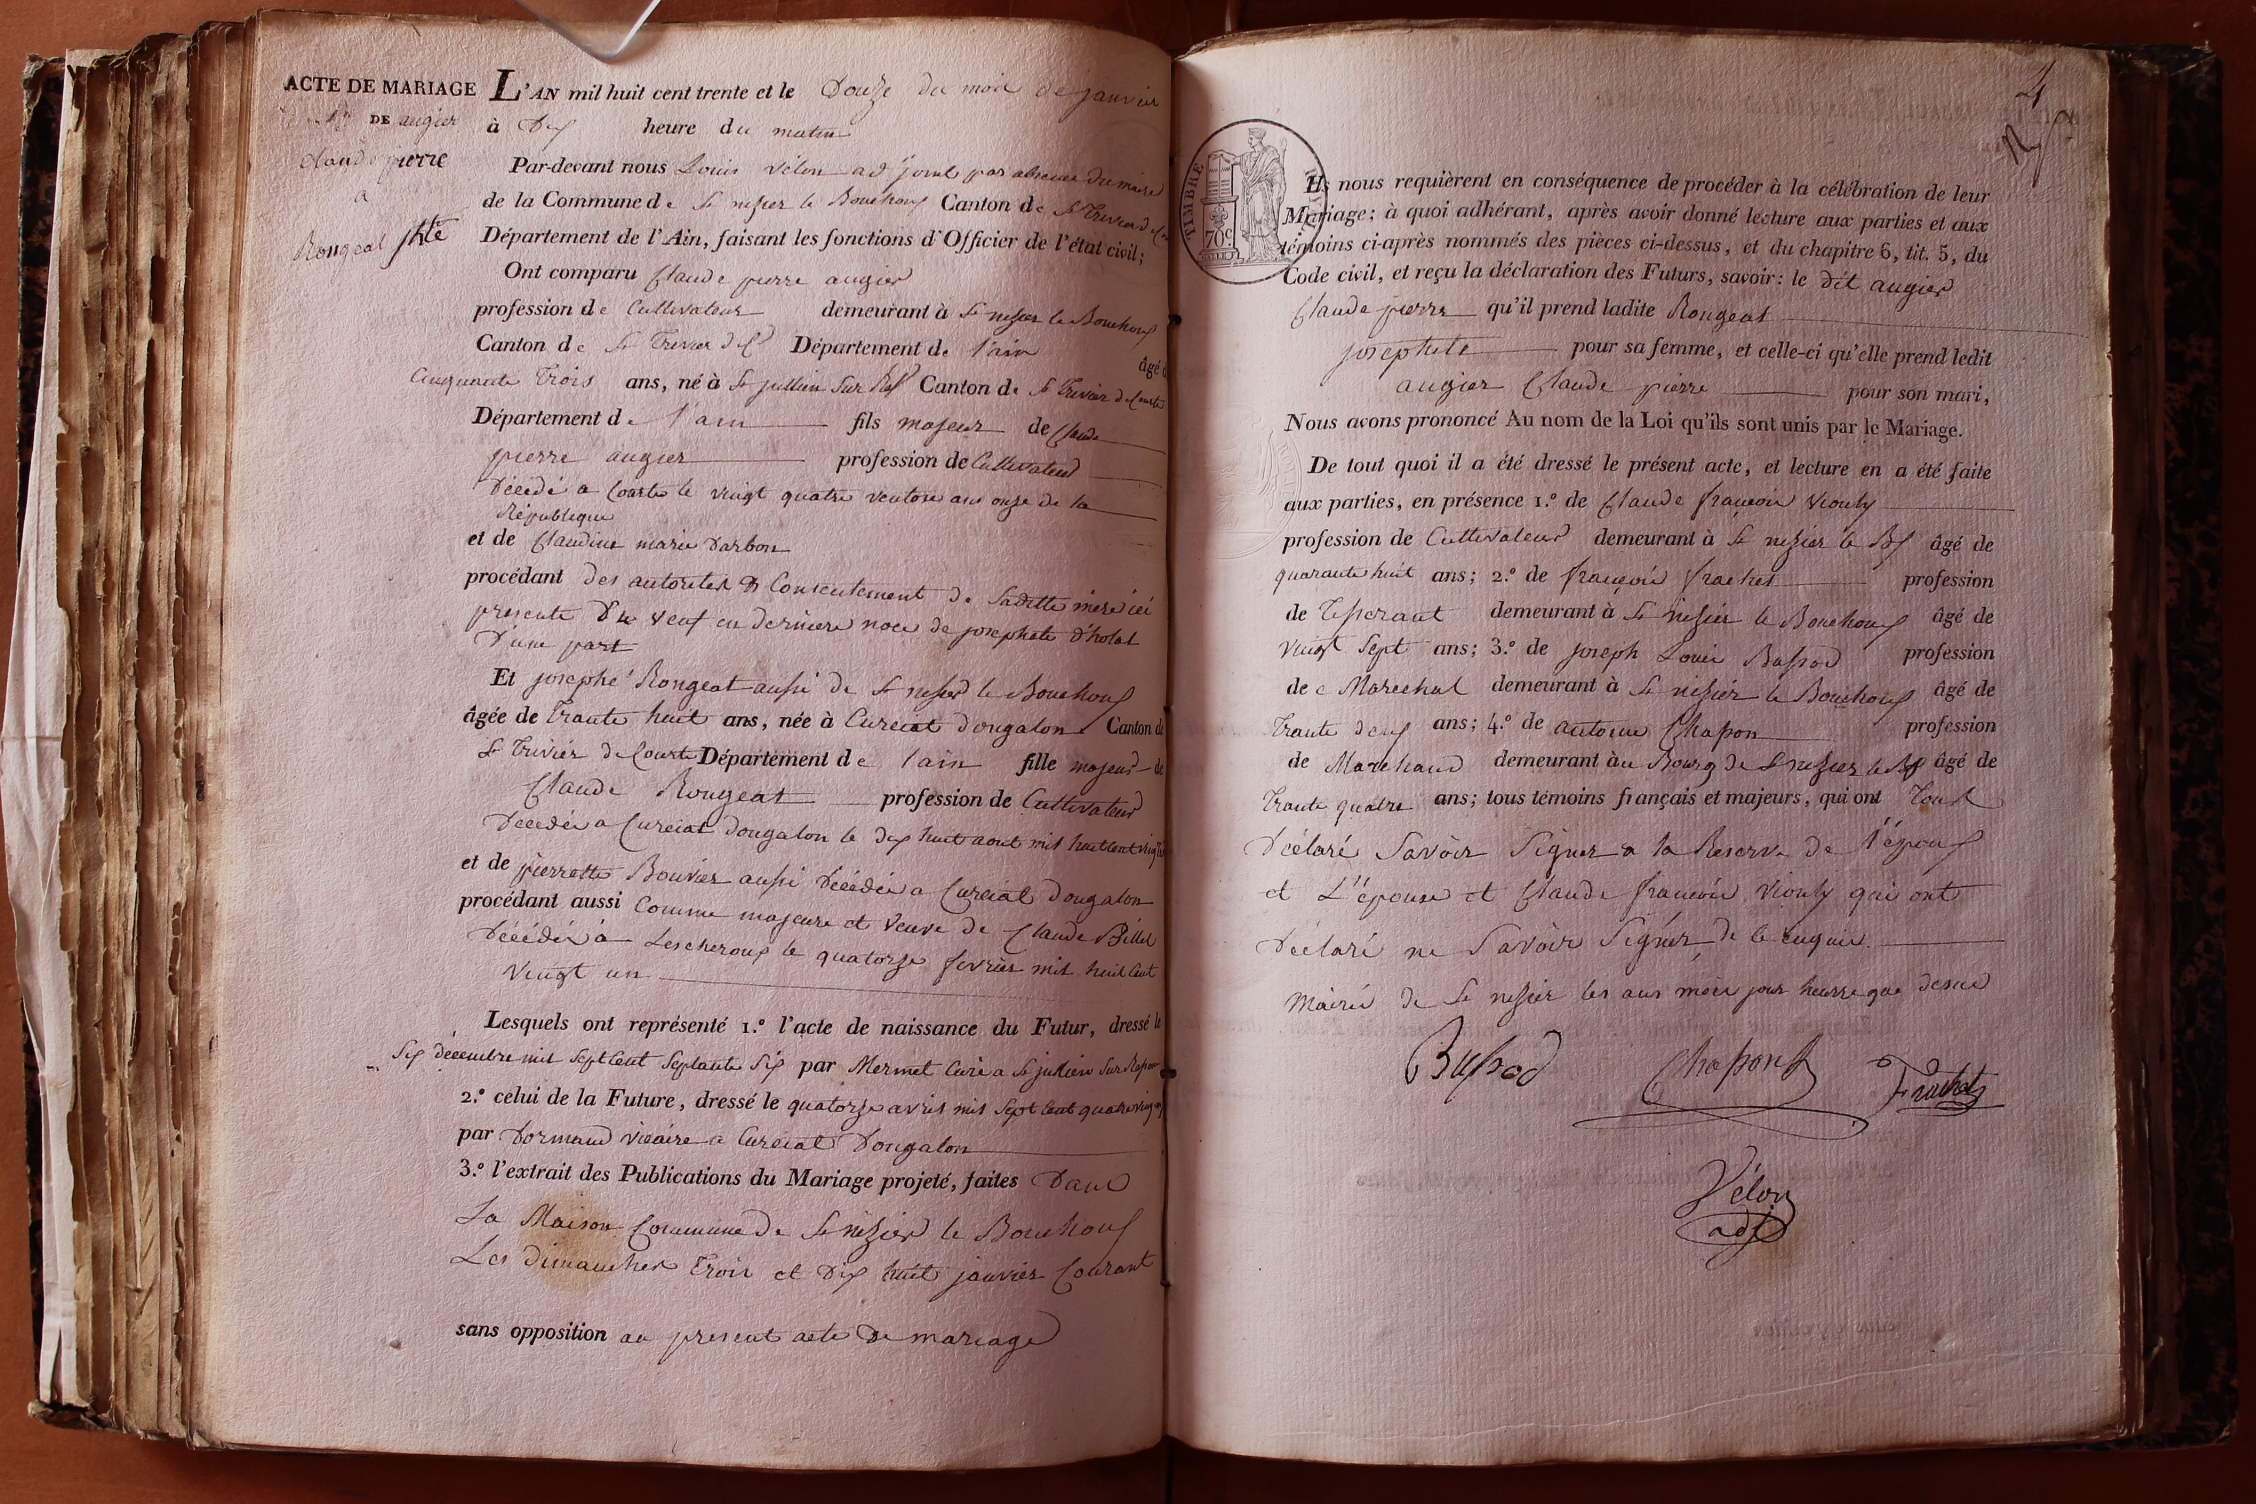 ACTE DE MARIAGE
DE augier
Claude pierre
a
Rongeat Jhte
L'AN mil huit cent trente et le Douze du mois de janvier
à Dix heure du matin
Par-devant nous Louis Vélon adjoint par absence du maire
de la Commune de St nizier le Bouchoux Canton de St Trivier de C
Département de l'Ain, faisant les fonctions d'Officier de l'état civil;
Ont comparu Claude pierre augier
profession de Cultivateur demeurant à St nizier le Bouchoux
Canton de St Trivier d C Département de l'ain âgé d
Cinquante Trois ans, né à St jullien Sur Rsse Canton de St Trivier de Courte
Département de l'ain fils majeur de Claude
pierre augier profession de Cultivateur
Décédé a Courte le vingt quatre ventose ans onze de la
République
et de Claudine marie Darbon
procédant des autorités & Consentement de Saditte mère ici
presente & veuf en derniere noce de josephete d'holat
D'une part
Et josephé Rongeat aussi de St nizier le Bouchoux
âgée de Traute huit ans, née à Curciat dongalon Canton de
St Trivier de Courte Département de l'ain fille majeur de
Claude Rongeat profession de Cultivateur
Décédée a Curciat dongalon le dix huit aout mil huit cent vingt
et de pierrette Bouvier aussi Décédée a Curciat Dongalon
procédant aussi Comme majeure et Veuve de Claude Billet
Décédée à Lescheroux le quatorze fevrier mil huit Cent
Vingt un
Lesquels ont représenté 1.º l'acte de naissance du Futur, dressé le
Six décembre mil Sept Cent Septante Six par Mermet Curé a St julien Sur Rssouse
2.º celui de la Future, dressé le quatorze avril mil Sept Cent quatre vingt
par Dormand vicaire a Curciat Dongalon
3.º l'extrait des Publications du Mariage projeté, faites Dans
La Maison Commune de St nizier le Bouchoux
Les dimanches Trois et Dix huit janvier Courant
sans opposition au present acte De mariage
4
TIMBRE
70c
Ils nous requièrent en conséquence de procéder à la célébration de leur
Mariage; à quoi adhérant, après avoir donné lecture aux parties et aux
témoins ci-après nommés des pièces ci-dessus, et du chapitre 6, tit. 5, du
Code civil, et reçu la déclaration des Futurs, savoir: le dit augier
Claude pierre qu'il prend ladite Rongeat
josephete pour sa femme, et celle-ci qu'elle prend ledit
augier Claude pierre pour son mari,
Nous avons prononcé Au nom de la Loi qu'ils sont unis par le Mariage.
De tout quoi il a été dressé le présent acte, et lecture en a été faite
aux parties, en présence 1.º de Claude françois Viouly
profession de Cultivateur demeurant à St nizier le Bx âgé de
quarante huit ans; 2.º de françois frachet profession
de Tisserant demeurant à St nizier le Bouchoux âgé de
Vingt Sept ans; 3.º de joseph Louis Bussod profession
de Marechal demeurant à St nizier le Bouchoux âgé de
Traute deux ans; 4.º de antoine Chapon profession
de Marchand demeurant àu Bourg de St nizier le Bx âgé de
Traute quatre ans; tous témoins français et majeurs, qui ont Tous
Déclaré Savoir Signer a la Reserve de l'époux
et L'épouse et Claude françois Viouly qui ont
Déclaré ne Savoir Signer de ce enquis.
Mairie de St nizier les ans mois jour heurre que desus
Bussod Chapon Frachet
Vélon
adj